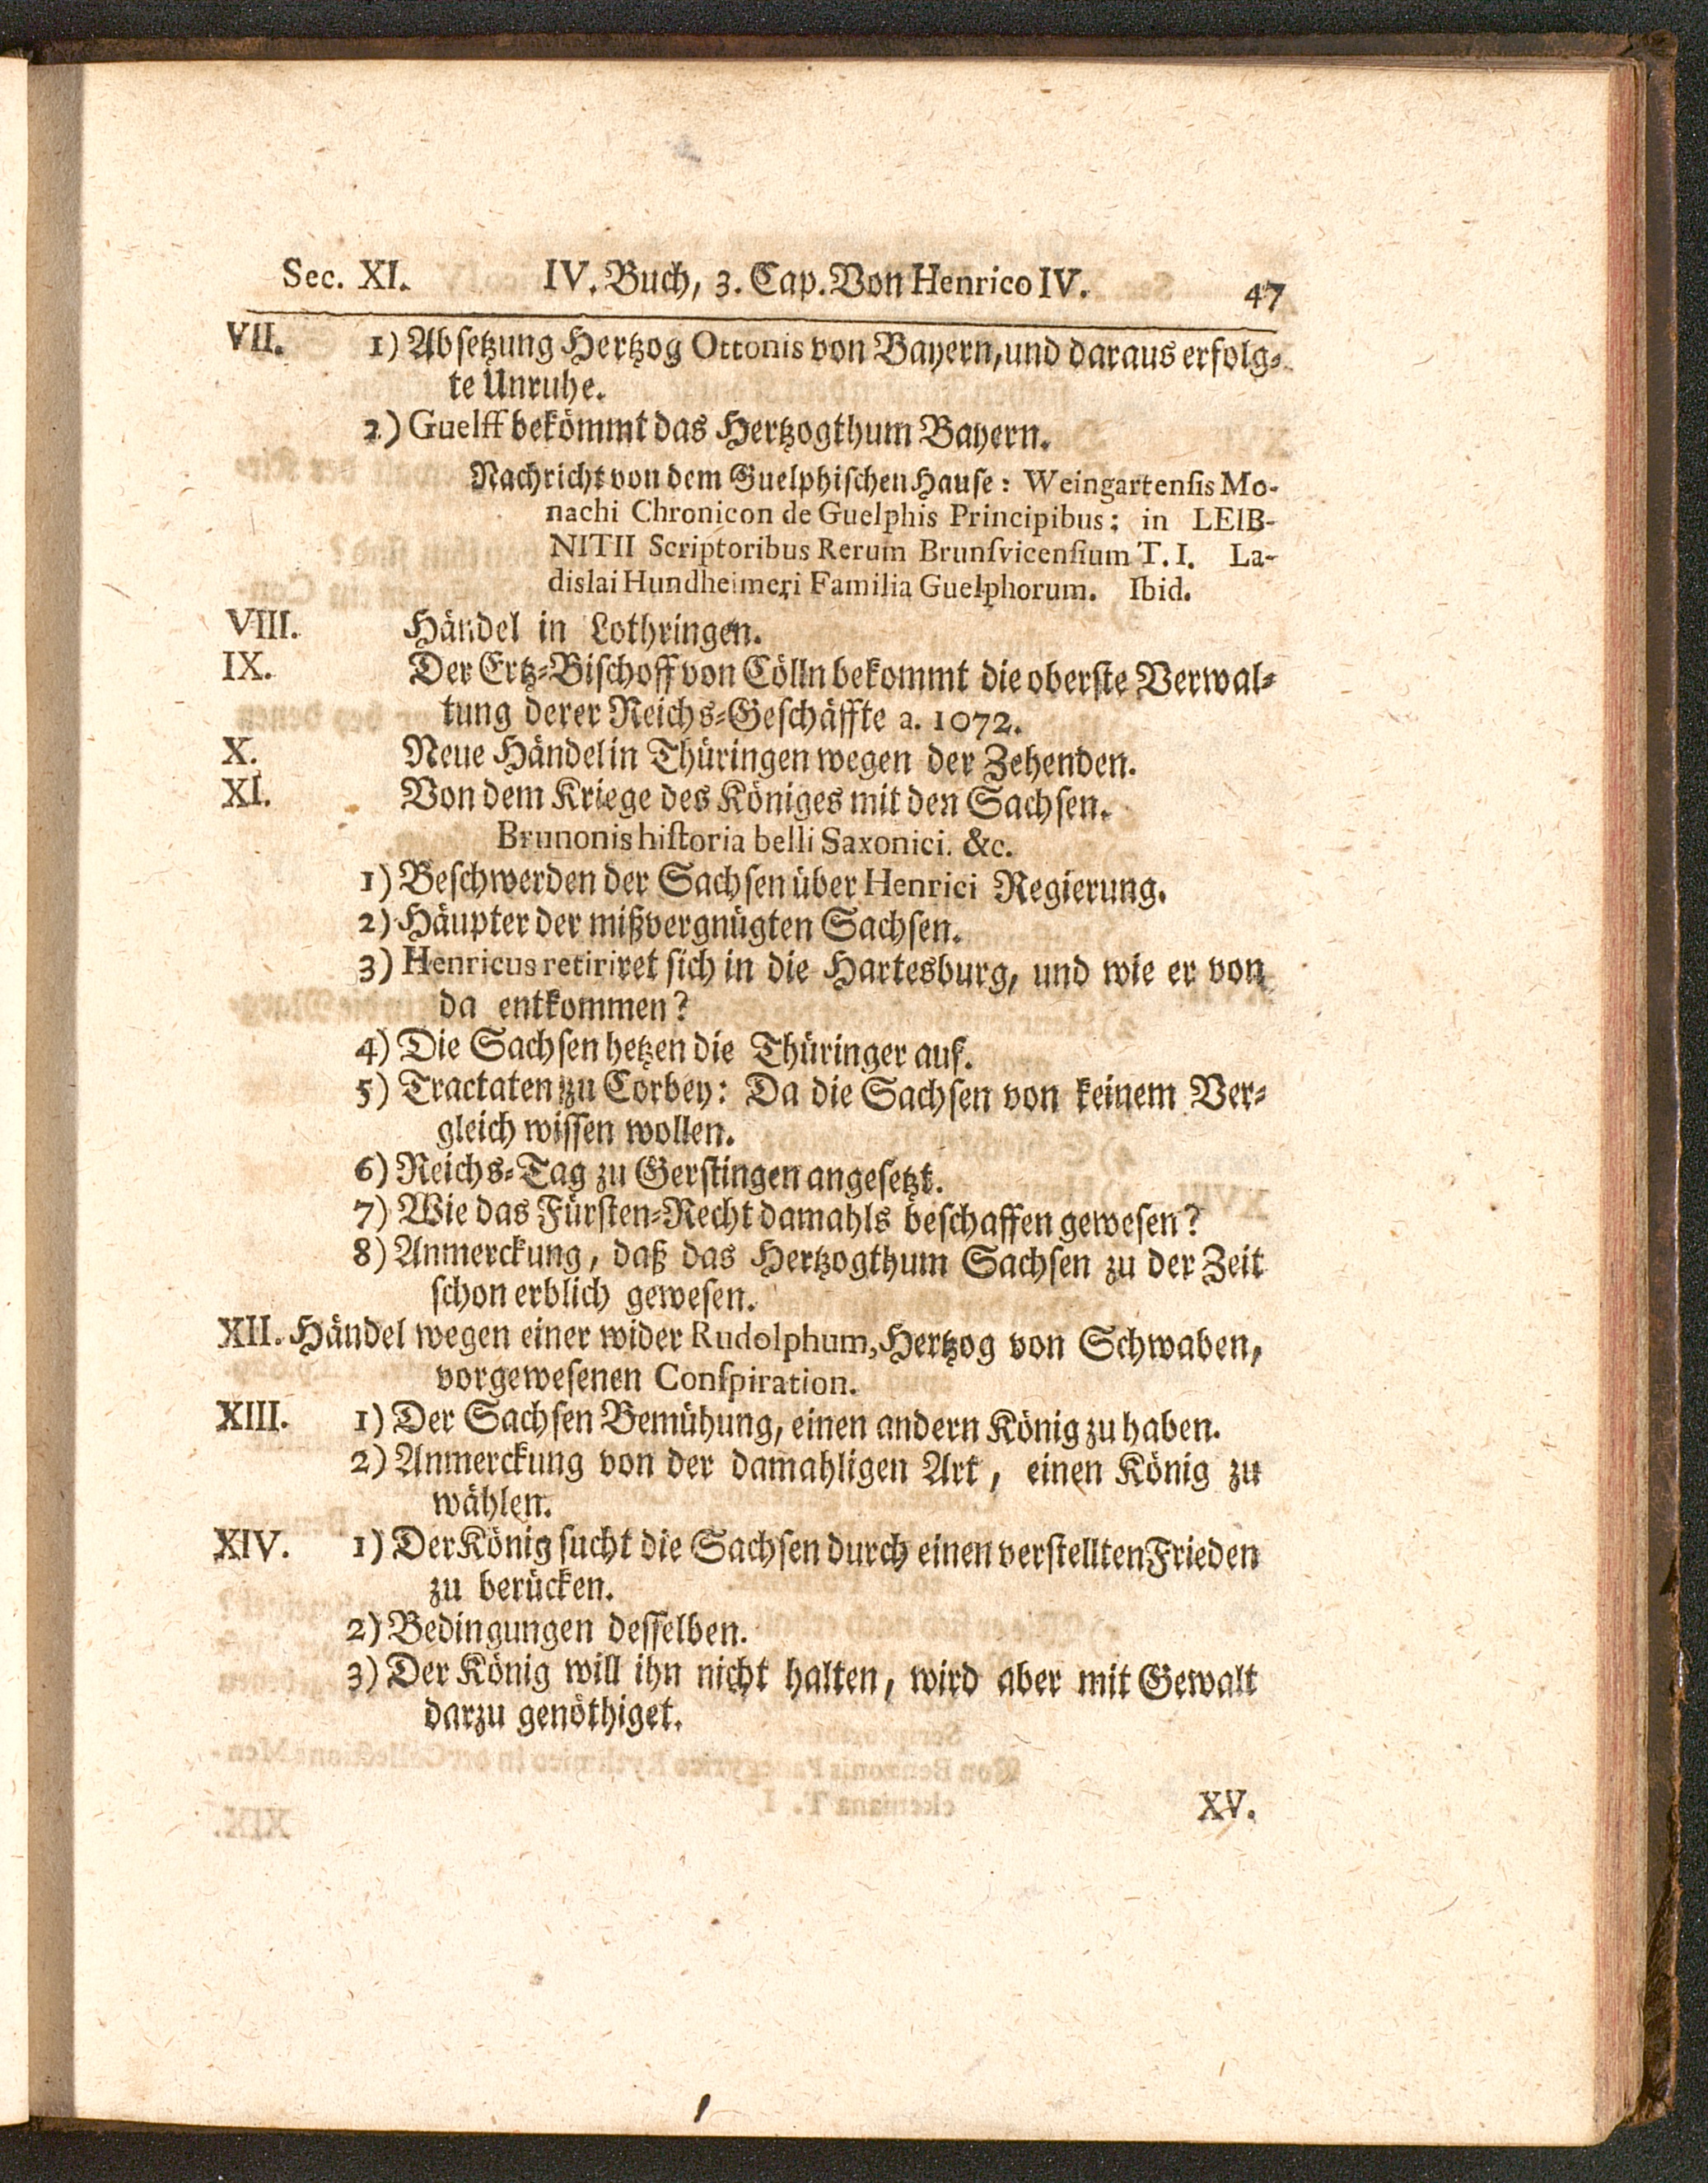 Sec. XI. IV. Buch, 3. Cap. Von Henrico IV. 47
VII. 1) Absetzung Hertzog Ottonis von Bayern, und daraus erfolg-
te Unruhe.
2) Guelff bekömmt das Hertzogthum Bayern.
Nachricht von dem Guelphischen Hause: Weingartensis Mo-
nachi Chronicon de Guelphis Principibus; in LEIB-
NITII Scriptoribus Rerum Brunsvicensium T. I. La-
dislai Hundheimeri Familia Guelphorum. Ibid.
VIII. Händel in Lothringen.
IX. Der Ertz-Bischoff von Cölln bekommt die oberste Verwal-
tung derer Reichs-Geschäffte a. 1072.
X. Neue Händel in Thüringen wegen der Zehenden.
XI. Von dem Kriege des Königes mit den Sachsen.
Brunonis historia belli Saxonici. &c.
1) Beschwerden der Sachsen über Henrici Regierung.
2) Häupter der mißvergnügten Sachsen.
3) Henricus retiriret sich in die Hartesburg, und wie er von
da entkommen?
4) Die Sachsen hetzen die Thüringer auf.
5) Tractaten zu Corbey: Da die Sachsen von keinem Ver-
gleich wissen wollen.
6) Reichs-Tag zu Gerstingen angesetzt.
7) Wie das Fürsten-Recht damahls beschaffen gewesen?
8) Anmerckung, daß das Hertzogthum Sachsen zu der Zeit
schon erblich gewesen.
XII. Händel wegen einer wider Rudolphum, Hertzog von Schwaben,
vorgewesenen Conspiration.
XIII. 1) Der Sachsen Bemühung, einen andern König zu haben.
2) Anmerckung von der damahligen Art, einen König zu
wählen.
XIV. 1) Der König sucht die Sachsen durch einen verstellten Frieden
zu berücken.
2) Bedingungen desselben.
3) Der König will ihn nicht halten, wird aber mit Gewalt
darzu genöthiget.
XV.